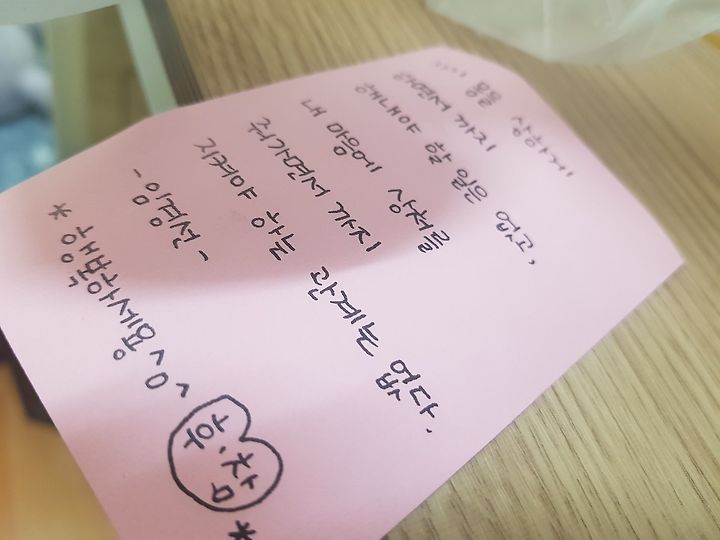 .... 몸을 상하게
하면서 까지
해내야 할 일은 없고,
내 마음에 상처를
줘가면서 까지
지켜야 하는 관계는 없다.
- 임경선 -
* 행복하세용^0^ *